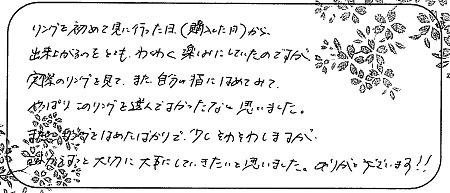 リングを初めて見に行った日(購入した日)から、
出来上がるのをとても、わくわく楽しみにしていたのですが
実際のリングを見て、また自分の指にはめてみて、
やっぱりこのリングを選んでよかったなと思いました。
リングをはめたばかりで、少しそわそわしますが、
ずっと大切に大事にしていきたいと思いました。ありがとうございます!!